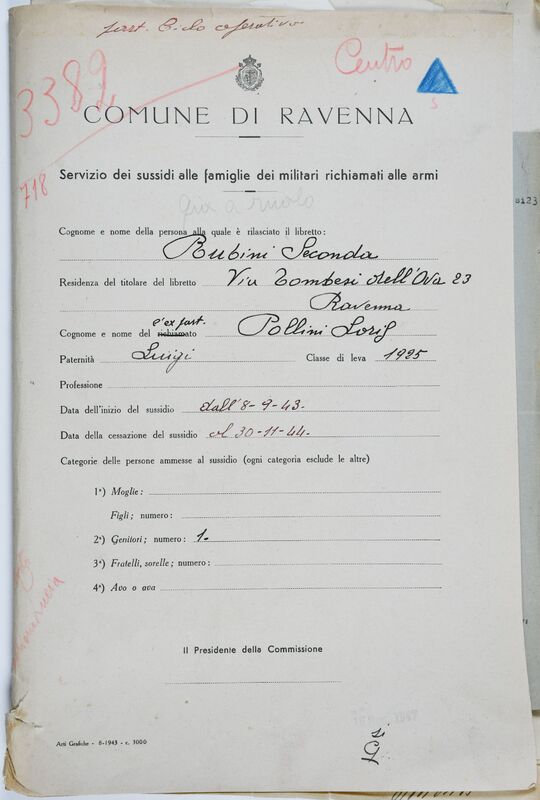 part. Ciclo operativo
3382
Centro
S
718
COMUNE DI RAVENNA
Servizio dei sussidi alle famiglie dei militari richiamati alle armi
già a ruolo
Cognome e nome della persona alla quale è rilasciato il libretto:
Rubini Seconda
Residenza del titolare del libretto Via Tombesi dell'Ova 23
Ravenna
l'ex part.
Cognome e nome del richiamato Pollini Loris
Paternità Luigi Classe di leva 1925
Professione
Data dell'inizio del sussidio dall'8-9-43.
Data della cessazione del sussidio al 30-11-44.
Categorie delle persone ammesse al sussidio (ogni categoria esclude le altre)
1ª) Moglie:
Figli; numero:
2ª) Genitori; numero: 1.
3ª) Fratelli, sorelle; numero:
4ª) Avo o ava
Il Presidente della Commissione
si
Arti Grafiche - 8-1943 - c. 3000